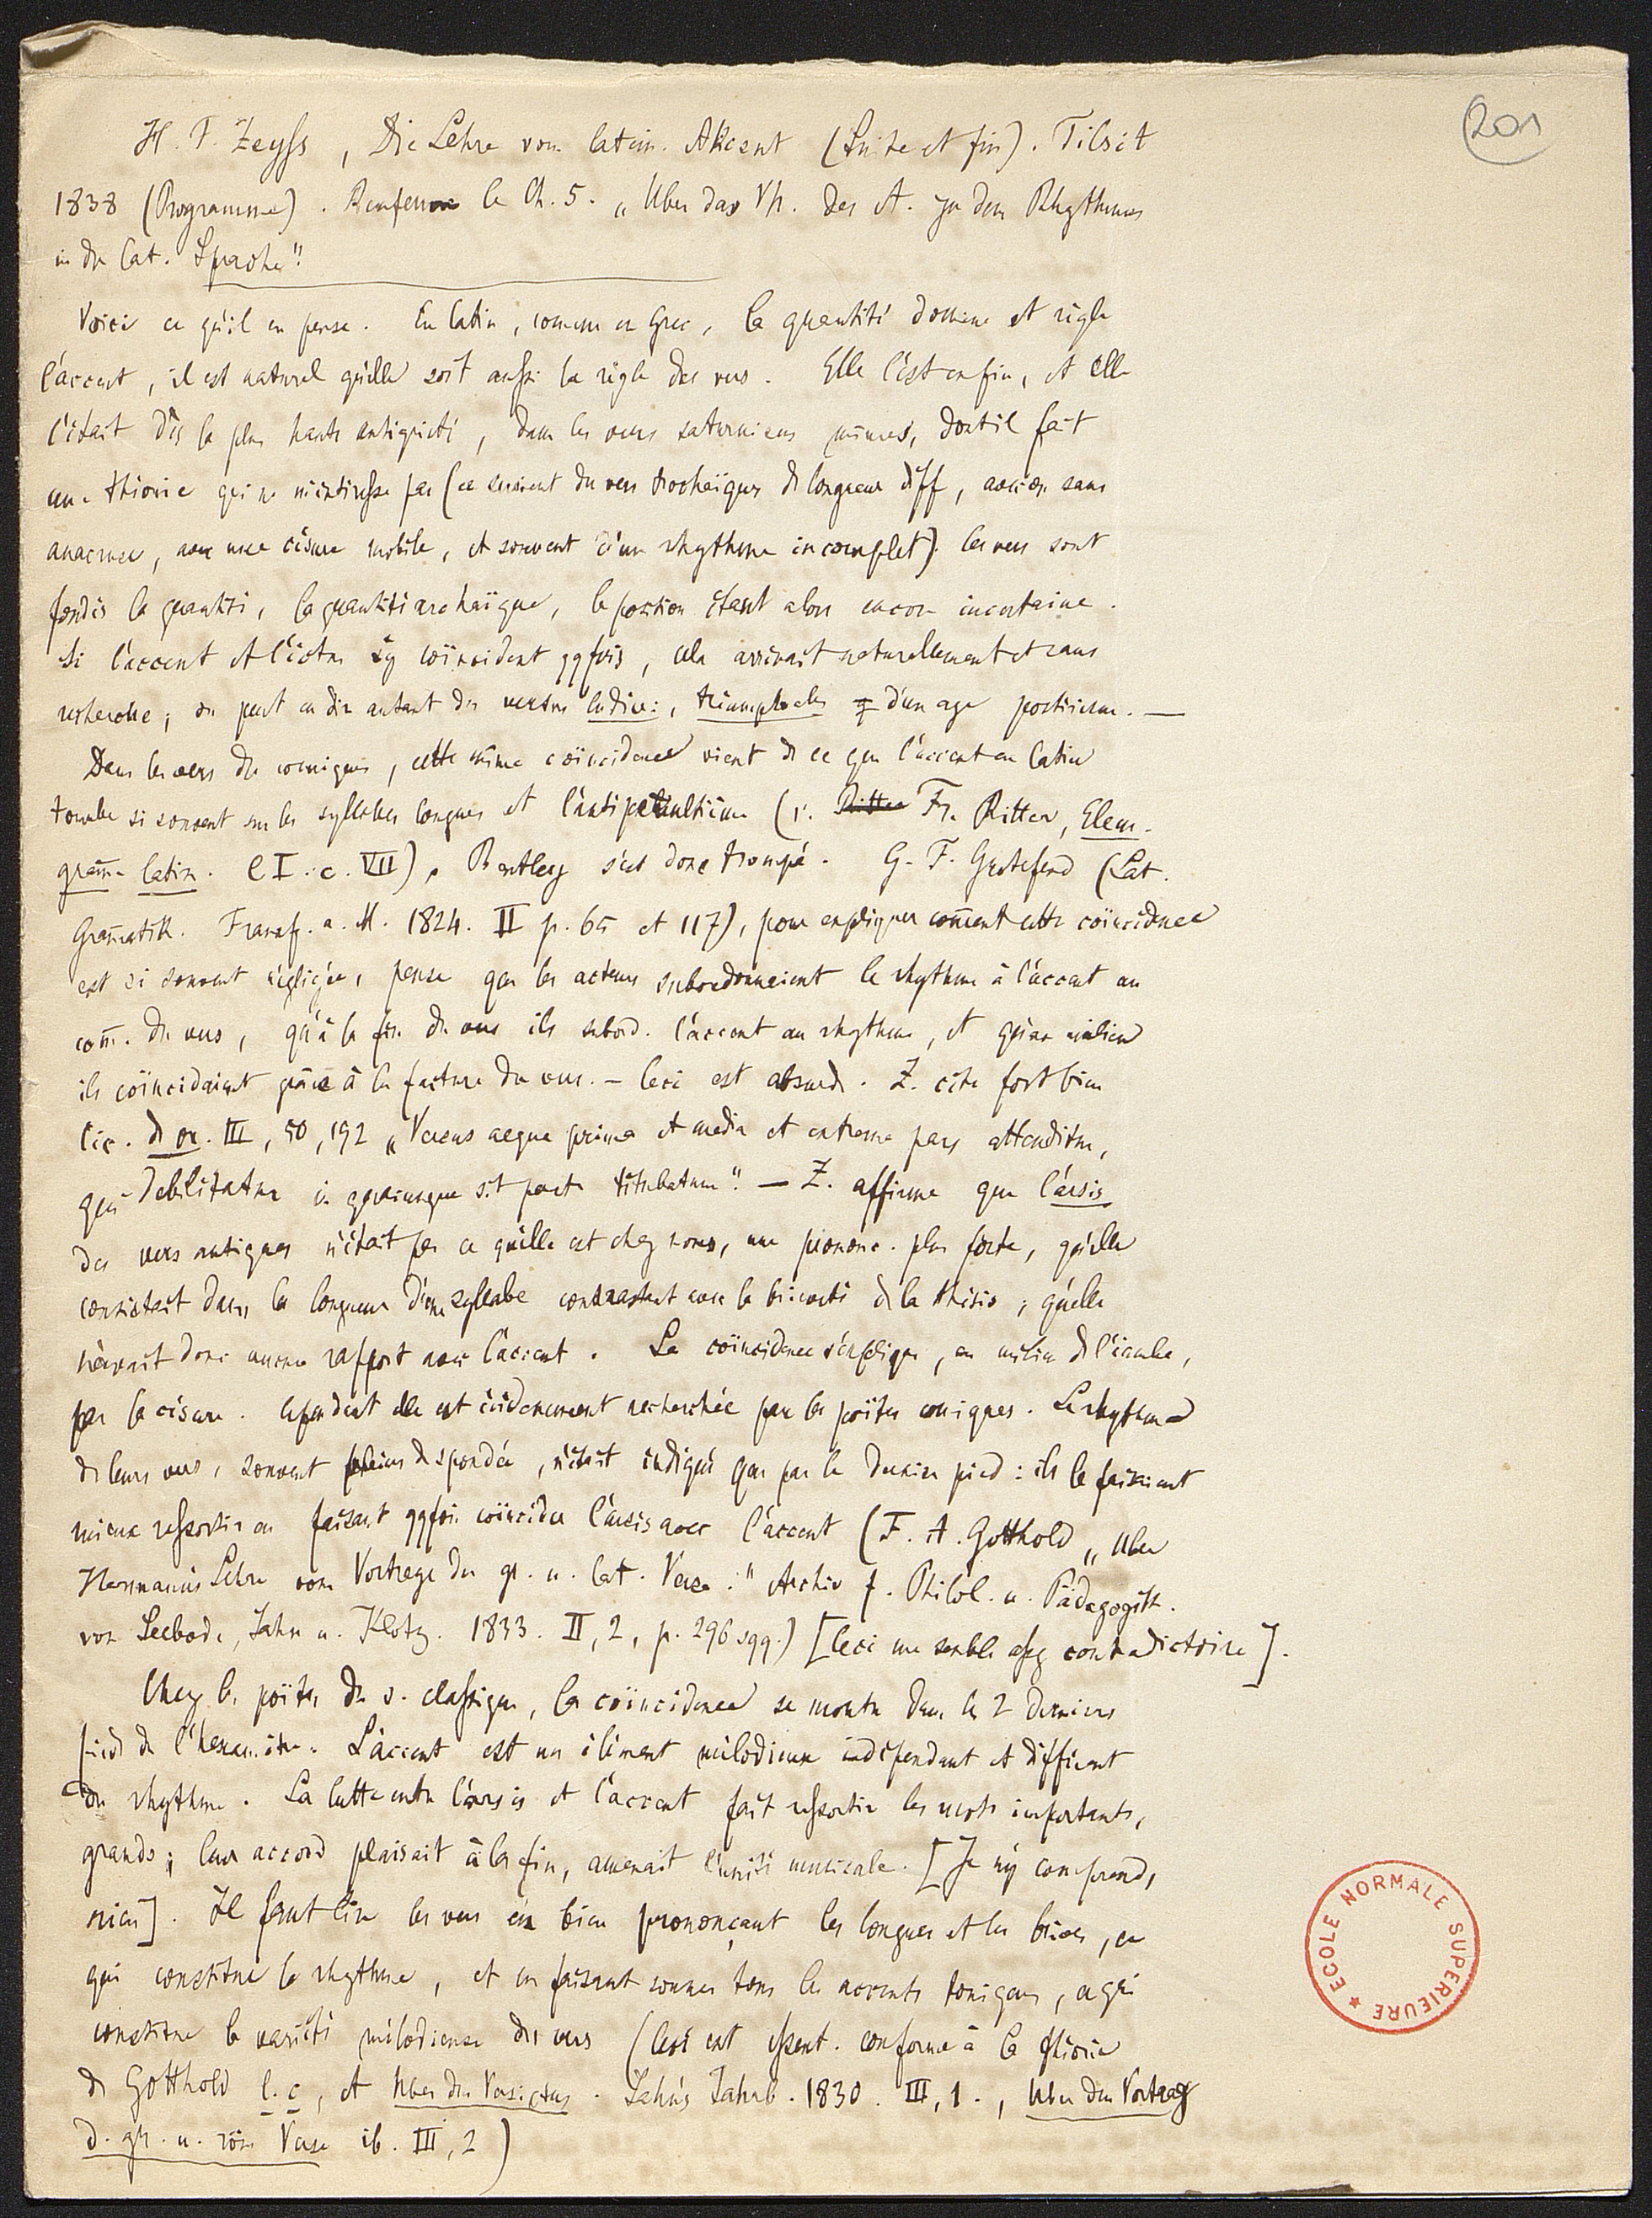 201
H. F. Zeyſs, Die Lehre vom latein. Akcent (Suite et fin). Tilsit
1838 (Programme). Renferme le Ch. 5. „Uber das Vh. des A. zu dem Rhythmus
in der lat. Sprache"
Voici ce qu'il en pense. En latin, comme en Grec, la quantité domine et règle
l'accent, il est naturel qu'elle soit auſsi la règle des vers. Elle l'est enfin, et elle
l'était dès la plus haute antiquité, dans les vers saturniens mêmes, dont il fait
une théorie qui ne m'intéreſse pas (ce seraient des vers trochaïques de longueur diff, avec ou sans
anacruse, avec une césure mobile, et souvent d'un rhythme incomplet). Ces vers sont
fondés la quantité, la quantité archaïque, la position étant alors encore incertaine.
Si l'accent et l'ictus s'y coïncident qqfois, cela arrivait naturellement et sans
recherche; on peut en dire autant des versus ludicr:, triumphales d'un age postérieur. —
Dans les vers des comiques, cette même coïncidence vient de ce que l'accent en latin
tombe si souvent sur les syllabes longues et l'antépénultième (v. Fr. Ritter, Elem.
gram̄. latin. l I. c. VII). Bentley s'est donc trompé. G. F. Grotefend (Lat.
Gram̄atik. Frankf. a. M. 1824. II p. 65 et 117), pour expliquer com̄ent cette coïncidence
est si souvent négligée, pense que les acteurs subordonnaient le rhythme à l'accent au
com̄. du vers, qu'à la fin du vers ils subord. l'accent au rhythme, et qu'au milieu
ils coïncidaient grâce à la facture du vers. — Ceci est absurde. Z. cite fort bien
Cic. de or. III, 50, 192 „Versus aeque prima et media et extrema pars attenditur,
qui debilitatur in quacunque sit parte titubatum". — Z. affirme que l'arsis
des vers antiques n'était pas ce qu'elle est chez nous, une prononc. plus forte, qu'elle
consistait dans la longueur d'une syllabe contrastant avec la brièveté de la thésis, qu'elle
n'avait donc aucun rapport avec l'accent. La coïncidence s'explique, au milieu de l'iambe,
par la césure. Cependant elle est évidemment recherchée par les poètes comiques. Le rhythme
de leurs vers, souvent pleins de spondées, n'était indiqué que par le dernier pied: ils le faisaient
mieux reſsortir en faisant qqfois coïncider l'arsis avec l'accent (F. A. Gotthold „Uber
Hermann's Lehre vom Vortrage der gr. u. lat. Verse." Archiv f. Philol. u. Pädagogik.
von Seebode, Jahn u. Klotz. 1833. II, 2, p. 296 sqq.) [Ceci me semble aſsez contradictoire].
Chez les poètes du s. claſsique, la coïncidence se montre dans les 2 derniers
pieds de l'hexamètre. L'accent est un élément mélodieux indépendant et différent
du rhythme. La lutte entre l'arsis et l'accent fait reſsortir les mots importants,
grands; leur accord plaisait à la fin, amenait l'unité musicale. [Je n'y comprends
rien]. Il faut lire les vers en bien prononçant les longues et les brèves, ce
qui constitue le rhythme, et en faisant sonner tous les accents toniques, ce qui
constitue la variété mélodieuse des vers (Ceci est eſsent. conforme à la théorie
de Gotthold l. c, et Uber den Versictus. Jahn's Jahrb. 1830. III, 1., Uber den Vortrag
d. gr. u. röm Verse ib. III, 2)
ECOLE NORMALE SUPERIEURE